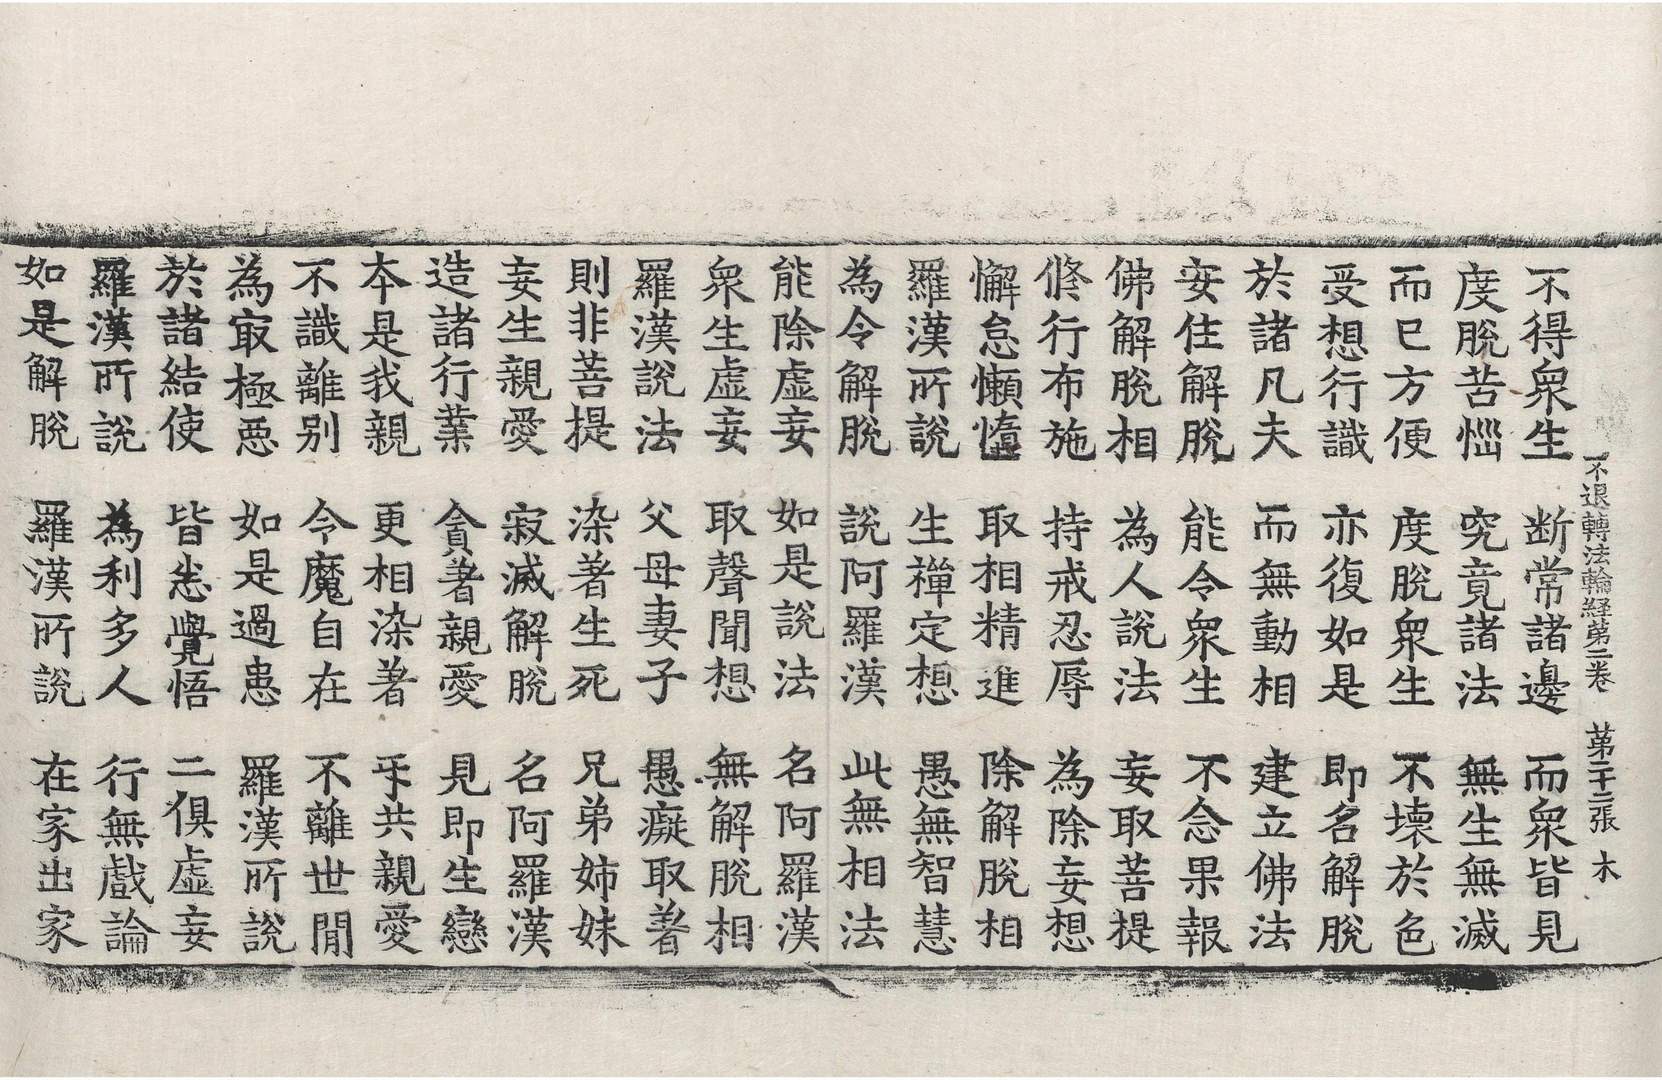 不退轉法輪経第二卷　第二十二張　木
不得衆生　断常諸邊　而衆皆見
度脫苦惱　究竟諸法　無生無滅
而已方便　度脫衆生　不壊於色
受想行識　亦復如是　即名解脫
於諸凡夫　而無動相　建立佛法
安住解脫　能令衆生　不念果報
佛解脫相　為人說法　妄取菩提
修行布施　持戒忍辱　為除妄想
懈怠懶惰　取相精進　除解脫相
羅漢所說　生禪定想　愚無智慧
為令解脫　說阿羅漢　此無相法
能除虛妄　如是說法　名阿羅漢
衆生虛妄　取聲聞想　無解脫相
羅漢說法　父母妻子　愚癡取著
則非菩提　染著生死　兄弟姊妹
妄生親愛　寂滅解脫　名阿羅漢
造諸行業　貪著親愛　見即生戀
本是我親　更相染著　乎共親愛
不識離別　令魔自在　不離世間
為㝡極惡　如是過患　羅漢所說
於諸結使　皆悉覺悟　二俱虛妄
羅漢所說　為利多人　行無戲論
如是解脫　羅漢所說　在家出家